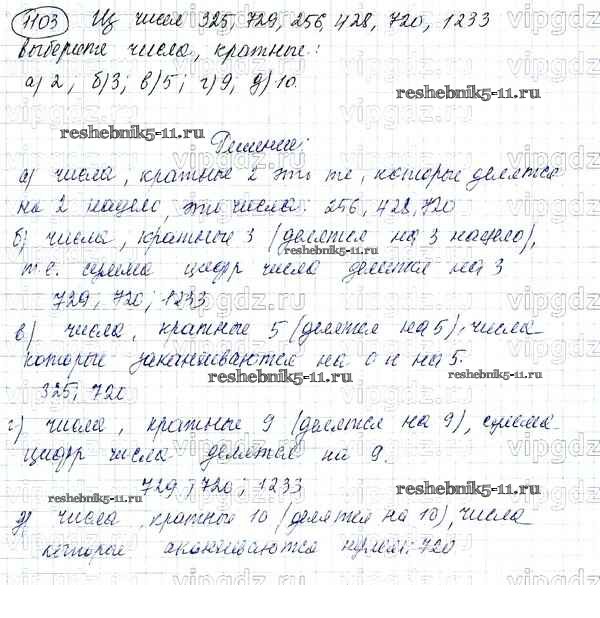 1103 Из чисел 325, 729, 256, 428, 720, 1233
выберите числа, кратные:
а) 2; б) 3; в) 5; г) 9, д) 10.
reshebnik5-11.ru
reshebnik5-11.ru
Решение:
а) числа, кратные 2 это те, которые делятся
на 2 нацело, это числа: 256, 428, 720
б) числа, кратные 3 (делятся на 3 нацело),
reshebnik5-11.ru
т.е. сумма цифр числа делится на 3
729; 720; 1233
в) числа, кратные 5 (делятся на 5), числа
которые заканчиваются на 0 и на 5.
reshebnik5-11.ru
325; 720
г) числа, кратные 9 (делятся на 9), сумма
цифр числа делится на 9.
729; 720; 1233
reshebnik5-11.ru
reshebnik5-11.ru
д) числа, кратные 10 (делятся на 10), числа
которые оканчиваются нулем: 720
vipgdz.ru